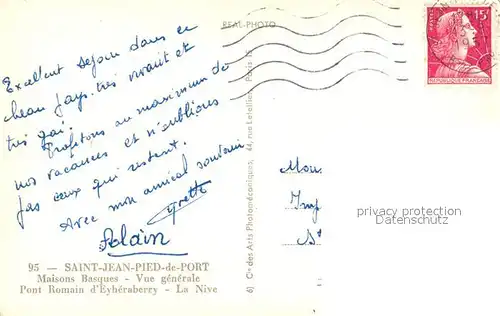 Excellent séjour dans ce
beau pays, très vivant et
très gai.
Profitons au maximum de
nos vacances et n'oublions
pas ceux qui restent.
Avec mon amical souvenir
Yvette
Alain
95 — SAINT-JEAN-PIED-de-PORT
Maisons Basques - Vue générale
Pont Romain d'Eyhéraberry - La Nive
REAL-PHOTO
6) Cie des Arts Photomécaniques, 44, rue Letellier, Paris 15
POSTES
15F
REPUBLIQUE FRANÇAISE
Mon
Imp
privacy protection
www.oldthing.de